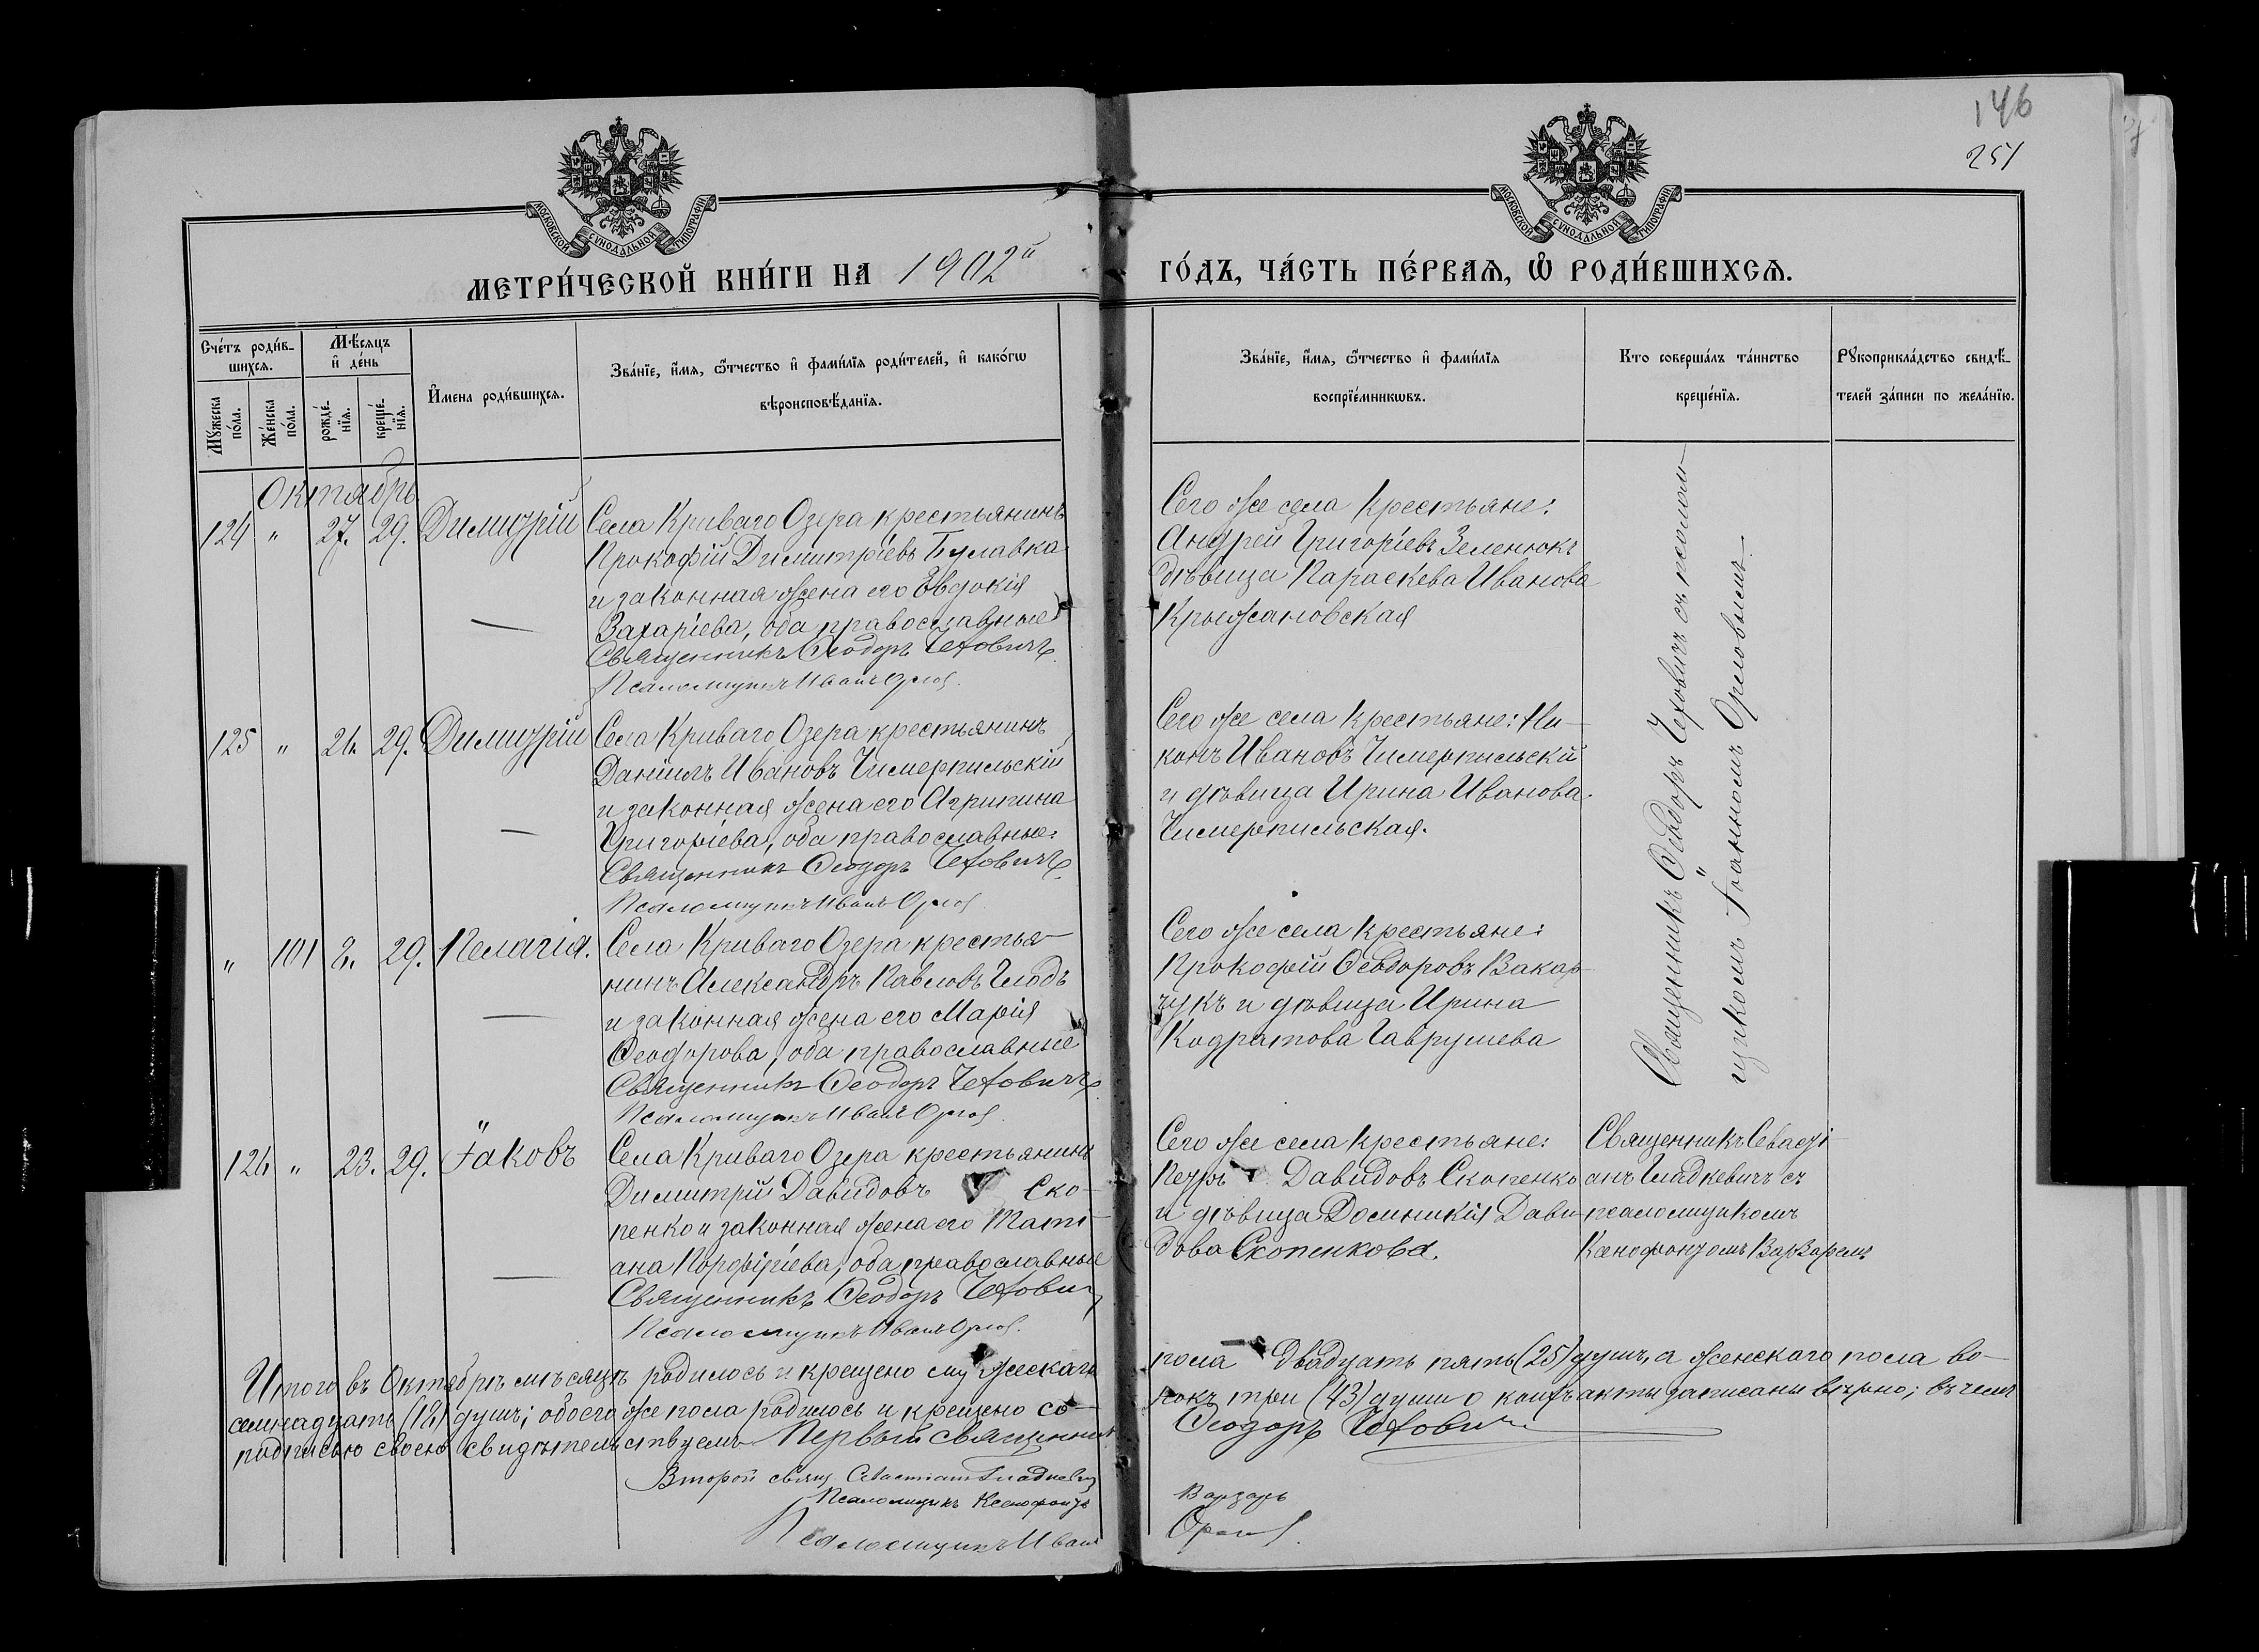 146
251
МОСКОВСКОЙ СѴНОДАЛЬНОЙ ТИПОГРАФІИ
МОСКОВСКОЙ СѴНОДАЛЬНОЙ ТИПОГРАФІИ
МЕТРИ́ЧЕСКОЙ КНИ́ГИ НА 1902й ГО́ДЪ, ЧА́СТЬ ПЕ́РВАЯ, Ѡ РОДИ́ВШИХСЯ.
Сче́тъ роди́в-
шихся.
Мѣ́сяцъ
и де́нь
Му́жеска
по́ла.
Же́нска
по́ла.
рожде́-
нїя.
креще́-
нїя.
И́мена роди́вшихся.
Зва́нїе, и́мя, ѻ́тчество и фами́лїя роди́телей, и како́гѡ
вѣроисповѣ́данїя.
Зва́нїе, и́мя, ѻ́тчество и фами́лїя
воспрїе́мникѡвъ.
Кто соверша́лъ та́инство
креще́нїя.
Рꙋкоприкла́дство свидѣ́-
телей за́писи по жела́нїю.
Октябрь
124 " 27. 29. Димитрій
Села Криваго Озера крестьянинъ
Прокофій Димитріевъ Булавка
и законная жена его Евдокія
Захаріева, оба православные
Священникъ Ѳеодоръ Чехович
Псаломщикъ Иванъ Орлов
Сего же села крестьяне:
Андрей Григоріевъ Зеленюкъ
дѣвица Параскева Иванова
Крыжановская
Священникъ Ѳеодоръ Чеховичъ съ псалом-
щикомъ Іоанномъ Орловымъ
125 " 26. 29. Димитрій
Села Криваго Озера крестьянинъ
Даніилъ Ивановъ Чимерпильскій
и законная жена его Агрипина
Григоріева, оба православные
Священникъ Ѳеодоръ Чехович
Псаломщикъ Иванъ Орлов
Сего же села крестьяне: Ни-
конъ Ивановъ Чимерпильскій
и дѣвица Ирина Иванова
Чимерпильская.
" 101 29. Пелагія.
Села Криваго Озера крестья-
нинъ Александръ Павловъ Глодъ
и законная жена его Марія
Ѳеодорова, оба православные
Священникъ Ѳеодоръ Чехович
Псаломщикъ Иванъ Орлов
Сего же села крестьяне:
Прокофій Ѳеодоровъ Вакар-
чукъ и дѣвица Ирина
Кодратова Гаврушева
126 " 23. 29. Іаковъ
Села Криваго Озера крестьянинъ
Димитрій Давидовъ Ско-
пенко и законная жена его Таті-
ана Порфиріева, оба православные
Священникъ Ѳеодоръ Чехович
Псаломщикъ Иванъ Орлов.
Сего же села крестьяне:
Петръ Давидовъ Скопенко
и дѣвица Доминикія Дави-
дова Скопенкова.
Священникъ Севасті-
анъ Гладкевичъ съ
псаломщикомъ
Ксенофонтомъ Варзаремъ
Итого въ Октябрѣ мѣсяцѣ родилось и крещено мужескаго пола двадцать пять (25) душъ, а женскаго пола во-
семнадцать (18) душъ; обоего же пола родилось и крещено со- рокъ три (43) души о коихъ акты записаны вѣрно; въ чемъ
подписью своею свидѣтельствуемъ Первый священникъ Ѳеодоръ Чехович
Второй свящ. Севастіанъ Гладкевич
Псаломщикъ Ксенофонтъ Варзарь
Псаломщикъ Иванъ Орлов